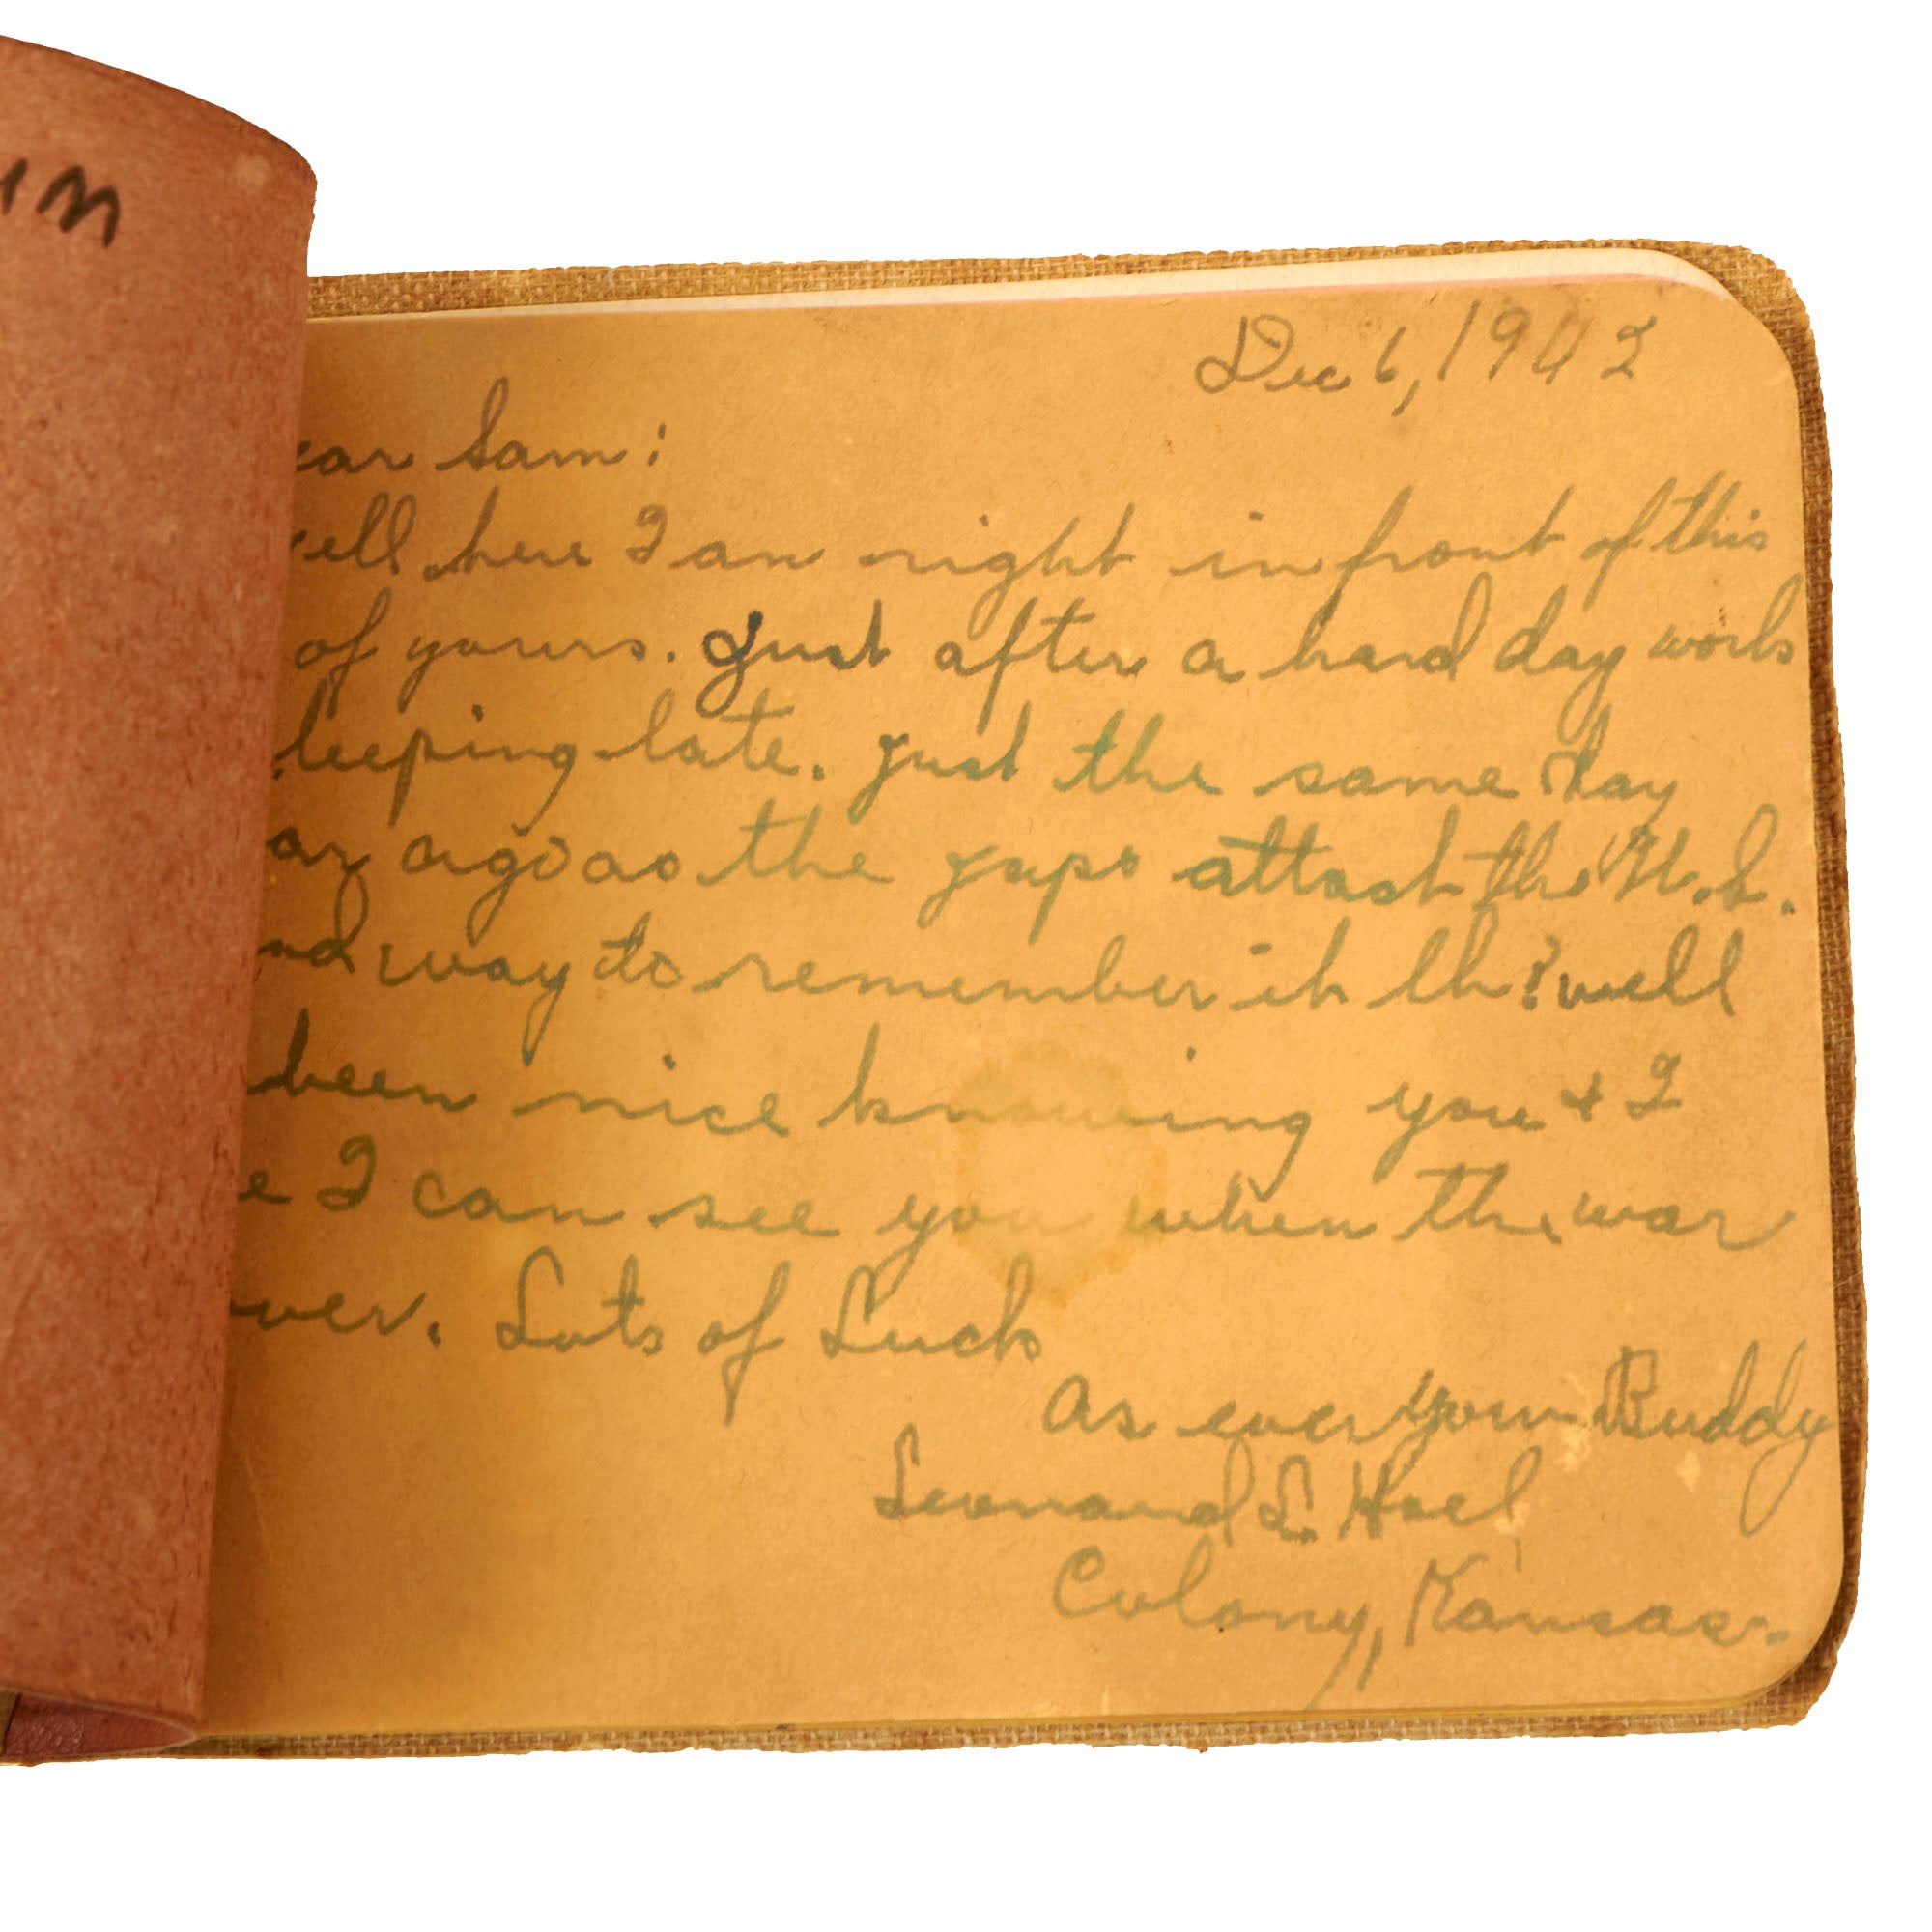 Dec 6, 1942
ear Sam:
ell here I am right in front of this
of yours. Just after a hard day work
leeping late. Just the same day
ar ago as the Japs attack the U.S.
nd way to remember it eh? well
been nice knowing you & I
e I can see you when the war
over. Lots of Luck
As ever your Buddy
Leonard L. Hoel
Colony, Kansas.